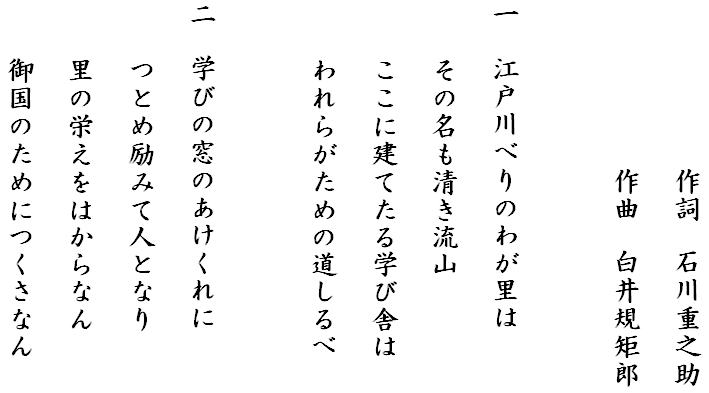 作詞　石川重之助
作曲　白井規矩郎
一　江戸川べりのわが里は
その名も清き流山
ここに建てたる学び舎は
われらがための道しるべ
二　学びの窓のあけくれに
つとめ励みて人となり
里の栄えをはからなん
御国のためにつくさなん